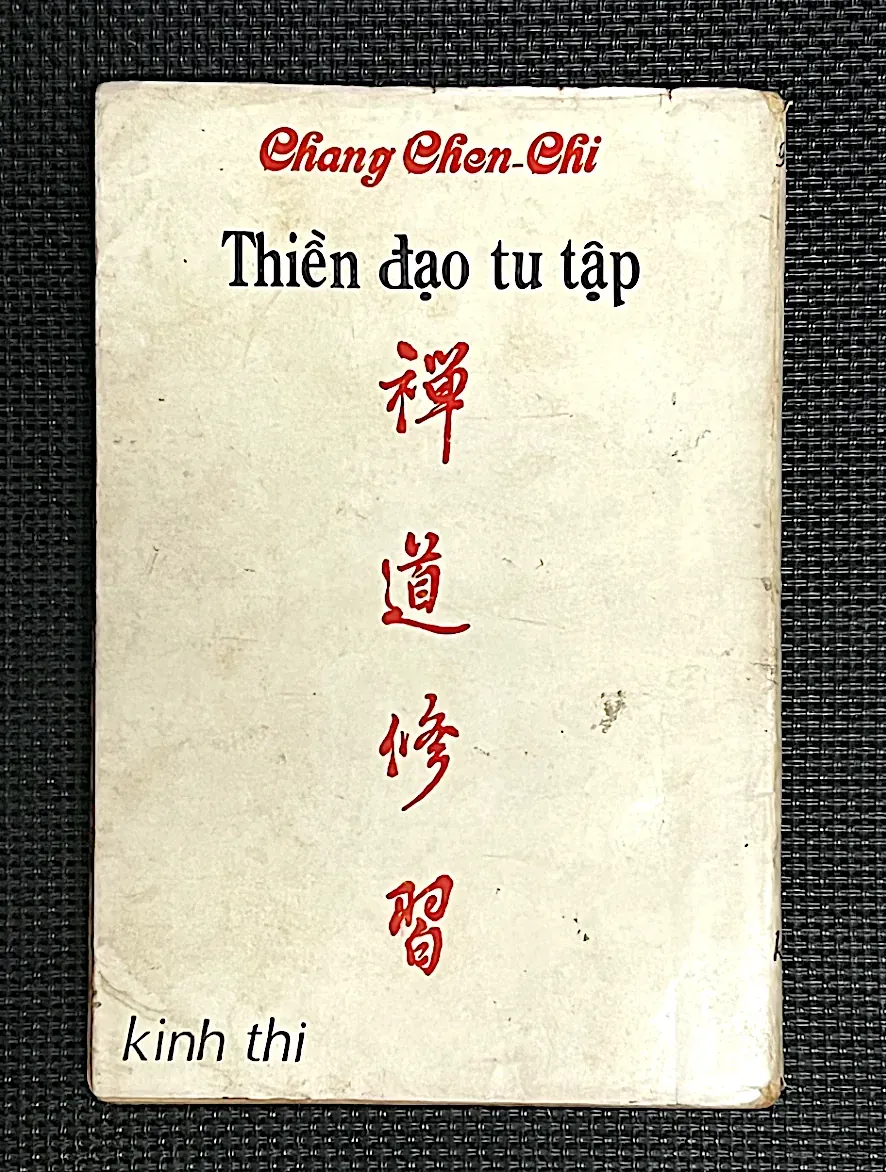 Chang Chen-Chi
Thiền đạo tu tập
禪
道
修
習
kinh thi